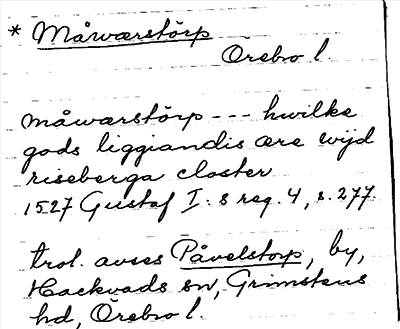 * Måwærstörp
Örebro l.
måwærstörp --- hwilke
gods liggiandis ære wijd
riseberga closter
1527 Gustaf I:s reg. 4, s. 277.
trol. avses Påvelstorp, by,
Hackvads sn, Grimstens
hd, Örebro l.